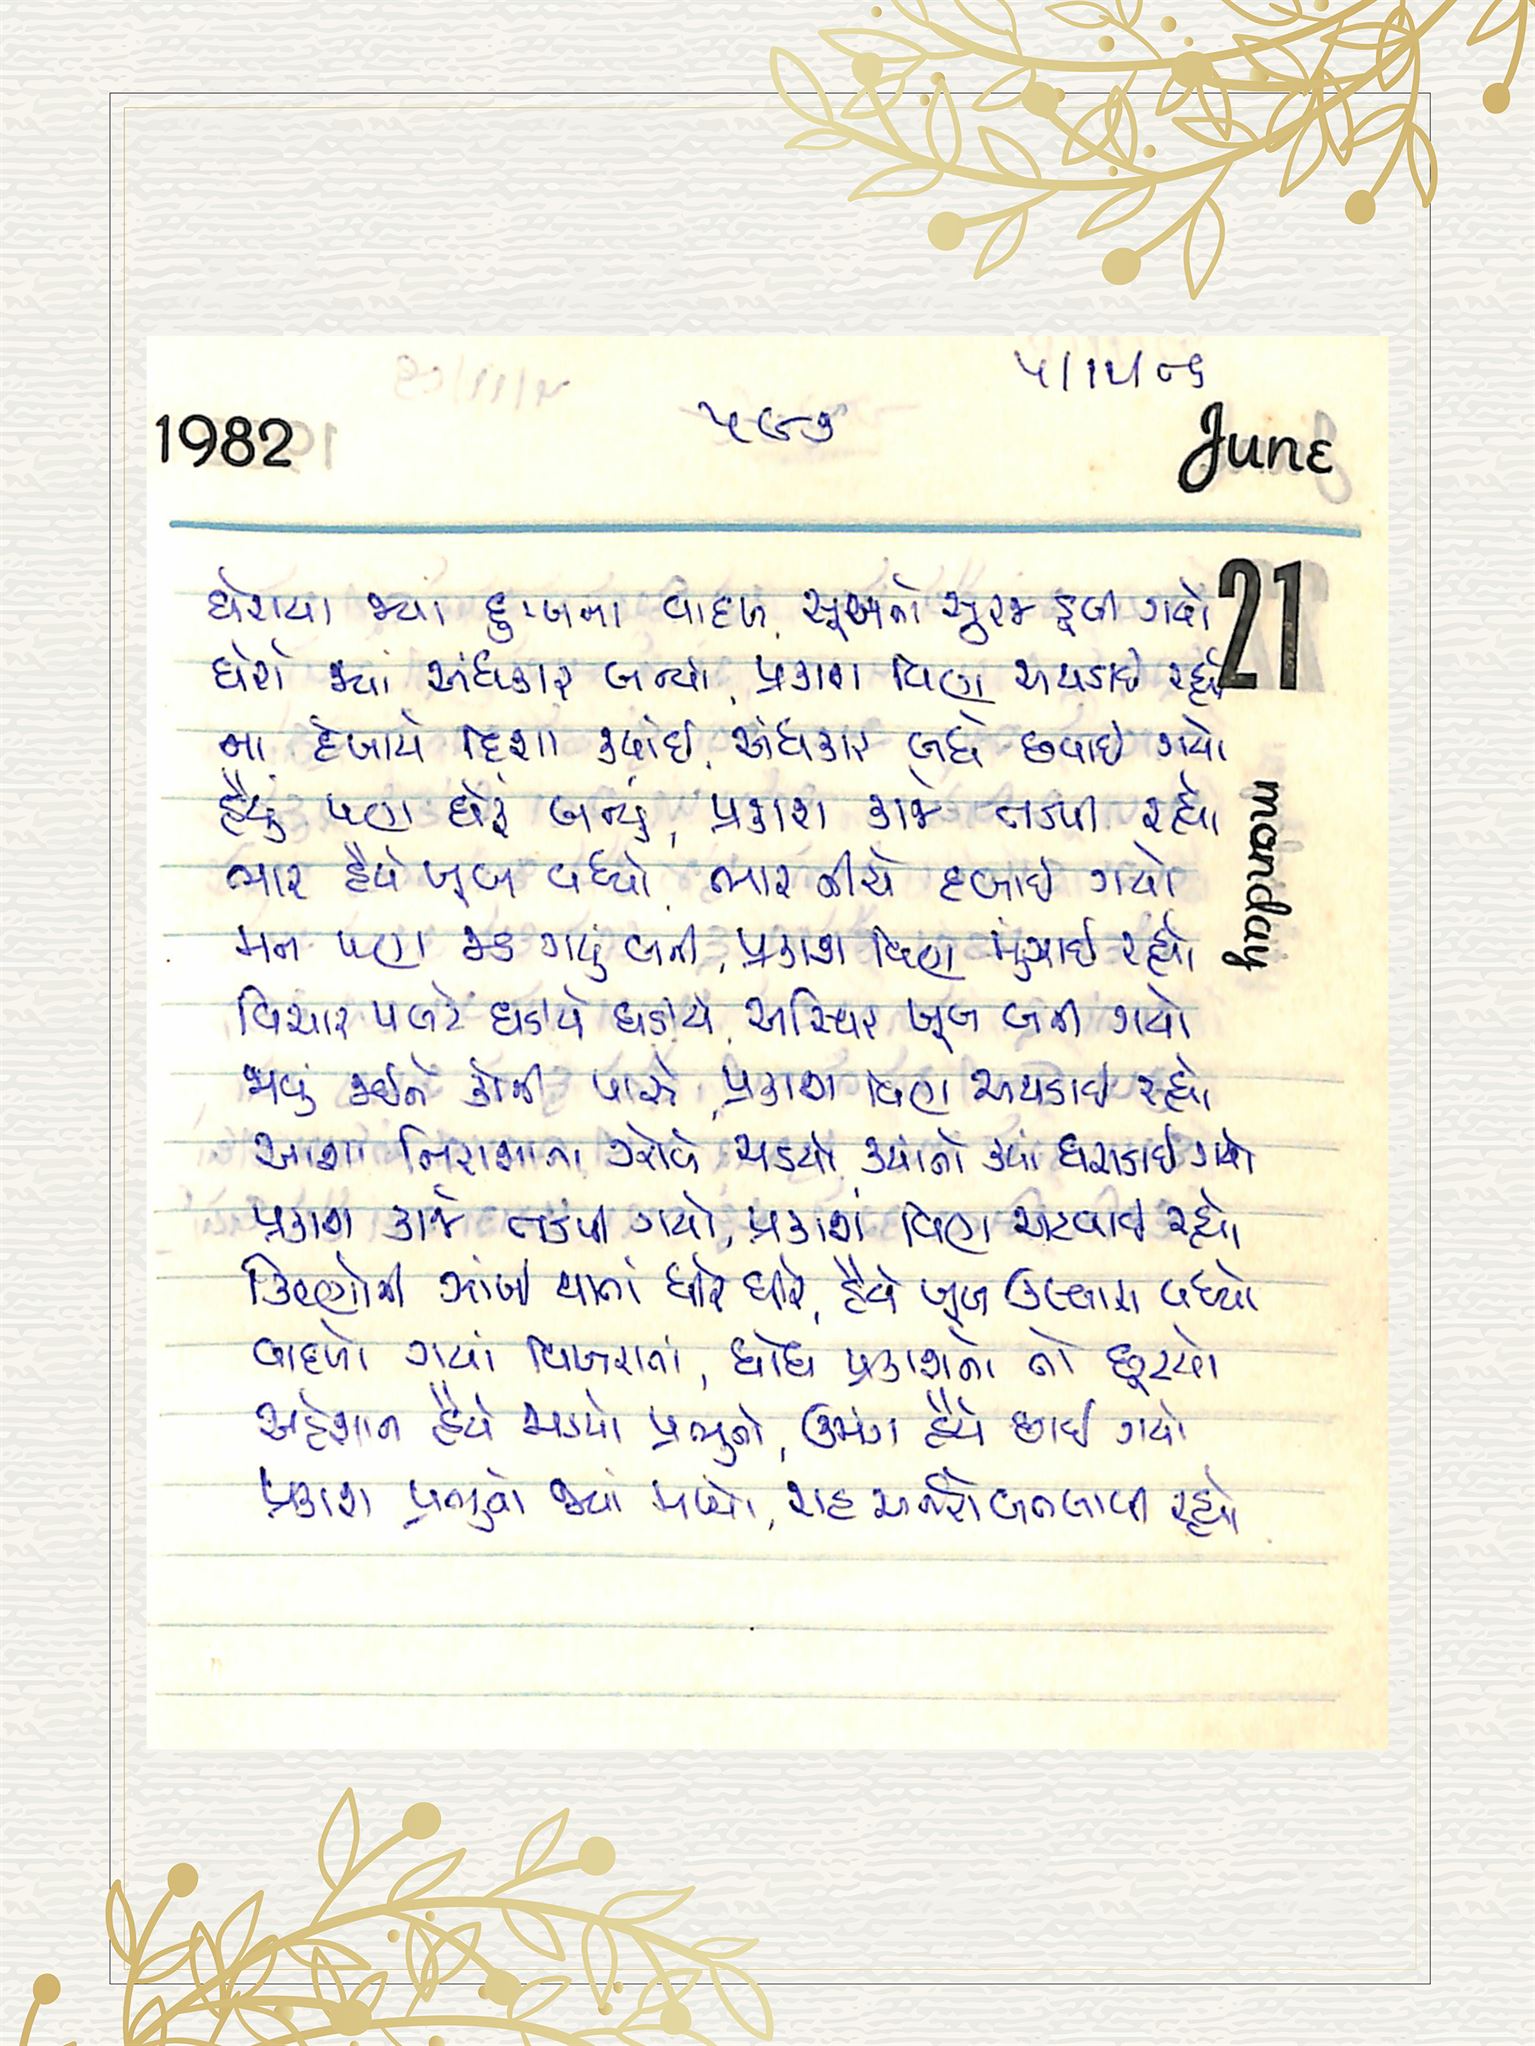 ૫/૧૧/૮૬
1982
૫૯૭
June
21
monday
ઘેરાયા જ્યાં દુઃખના વાદળ, સૂખનો સૂરજ ડૂબી ગયો
ઘેરો જ્યાં અંધકાર બન્યો, પ્રકાશ વિણ અથડાઈ રહ્યો
ના દેખાયે દિશા કદીઈ, અંધકાર બધે છવાઈ ગયો
હૈયું પણ ઘેરૂં બન્યું, પ્રકાશ કાજે તડપી રહ્યો
ભાર હૈયે ખૂબ વધ્યો, ભાર નીચે દબાઈ ગયો
મન પણ જડ ગયું બની, પ્રકાશ વિણ મુંઝાઈ રહ્યો
વિચાર પલટે ઘડીયે ઘડીયે, અસ્થિર ખૂબ બની ગયો
જાવું કઈને કોની પાસે, પ્રકાશ વિણ અથડાઈ રહ્યો
આશા નિરાશાના ઝોલે ચડયો, ક્યાંનો ક્યાં ઘસડાઈ ગયો
પ્રકાશ કાજે તડપી ગયો, પ્રકાશ વિણ અટવાઈ રહ્યો
કિરણોની ઝાંખી થાતાં ધીરે ધીરે, હૈયે ખૂબ ઉલ્લાસ વધ્યો
વાદળો ગયાં વિખરાતાં, ધોધ પ્રકાશનો તો છૂટયો
અહેશાન હૈયે ચડયો પ્રભુનો, ઉમંગ હૈયે છાઈ ગયો
પ્રકાશ પ્રભુનો જ્યાં મળ્યો, રાહ અનેરો બતલાવી રહ્યો